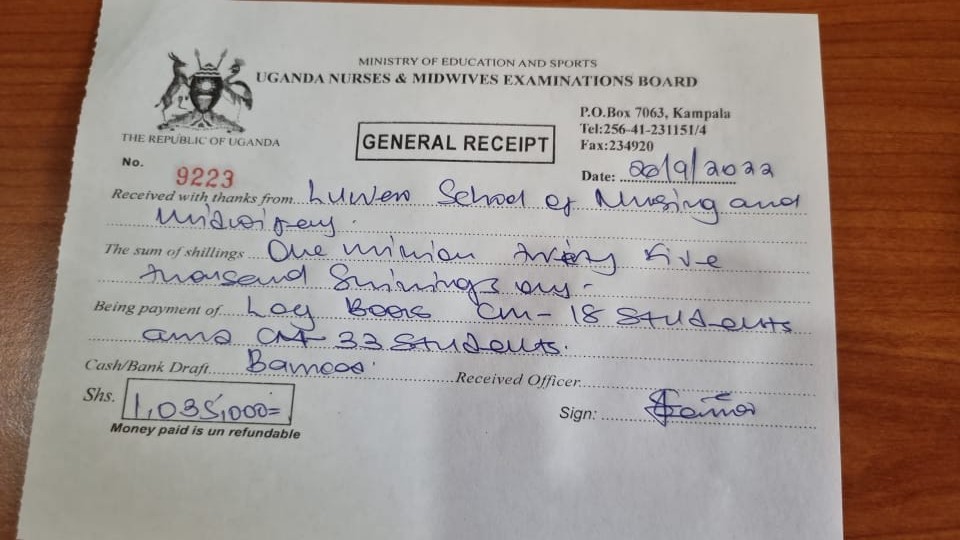 MINISTRY OF EDUCATION AND SPORTS
UGANDA NURSES & MIDWIVES EXAMINATIONS BOARD
P.O.Box 7063, Kampala
Tel:256-41-231151/4
Fax:234920
THE REPUBLIC OF UGANDA
GENERAL RECEIPT
No. 9223
Date: 20/9/2022
Received with thanks from Luwero School of Nursing and
Midwifery.
The sum of shillings One million thirty five
thousand shillings only.
Being payment of Log Books CM- 18 Students
and CN- 33 Students.
Cash/Bank Draft
Received Officer
Shs. 1,035,000=
Sign:
Money paid is un refundable